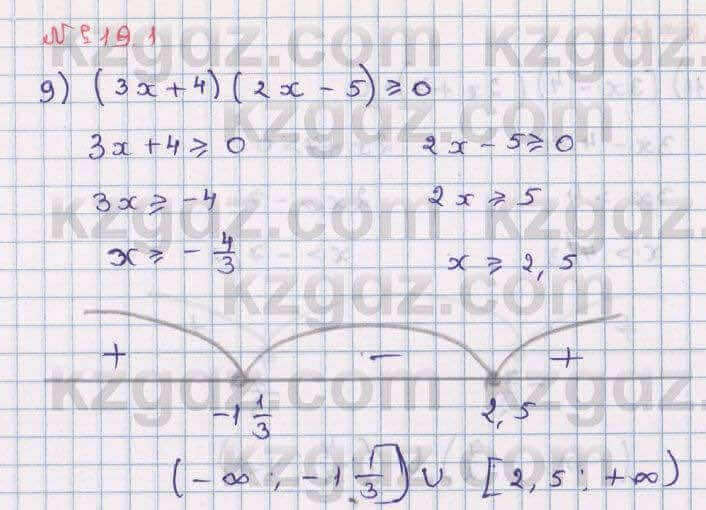 № 219.1
9) (3x+4)(2x-5)≥0
3x+4≥0 2x-5≥0
3x≥-4 2x≥5
x≥-4/3 x≥2,5
+ - +
-1 1/3 2,5
(-∞; -1 1/3] ∪ [2,5; +∞)
kzgdz.com
kzgdz.com
kzgdz.com
kzgdz.com
kzgdz.com
kzgdz.com
kzgdz.com